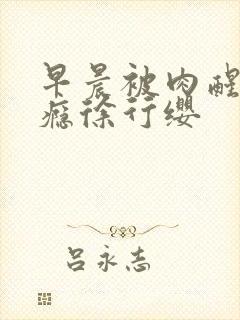 早晨被肉醒
瘾徐行缨
吕永志